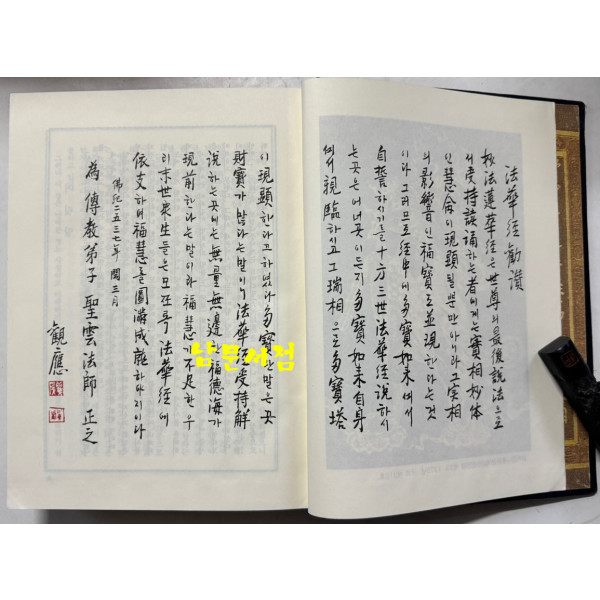 法華經勸讚
妙法蓮華經은 世尊의 最後說法으로
서 受持讀誦하는 者에게는 實相妙体
인 慧命이 現顯될 뿐만 아니라 그 实相
의 影響인 福寶도 並現한다는 것
이다 그러므로 經中에 多寶如来께서
自誓하시기를 十方三世法華經說하시
는 곳은 어네곳이든지 多寶如来自身
께서 親臨하시고 그 瑞相으로 多寶塔
이 現顯한다고 하였다 多寶란 말은 곳
財寶가 많다는 말이니 法華經受持解
說하는 곳에는 無量無邊한 福德海가
現前한다는 말이라 福慧가 不足한 우
리 末世衆生들은 모조록 法華經에
依支하여 福慧를 圓滿成就하야지이다
佛紀二五三七年 閏三月
為 傳教弟子 聖雲法師 正之
觀應
남문서점